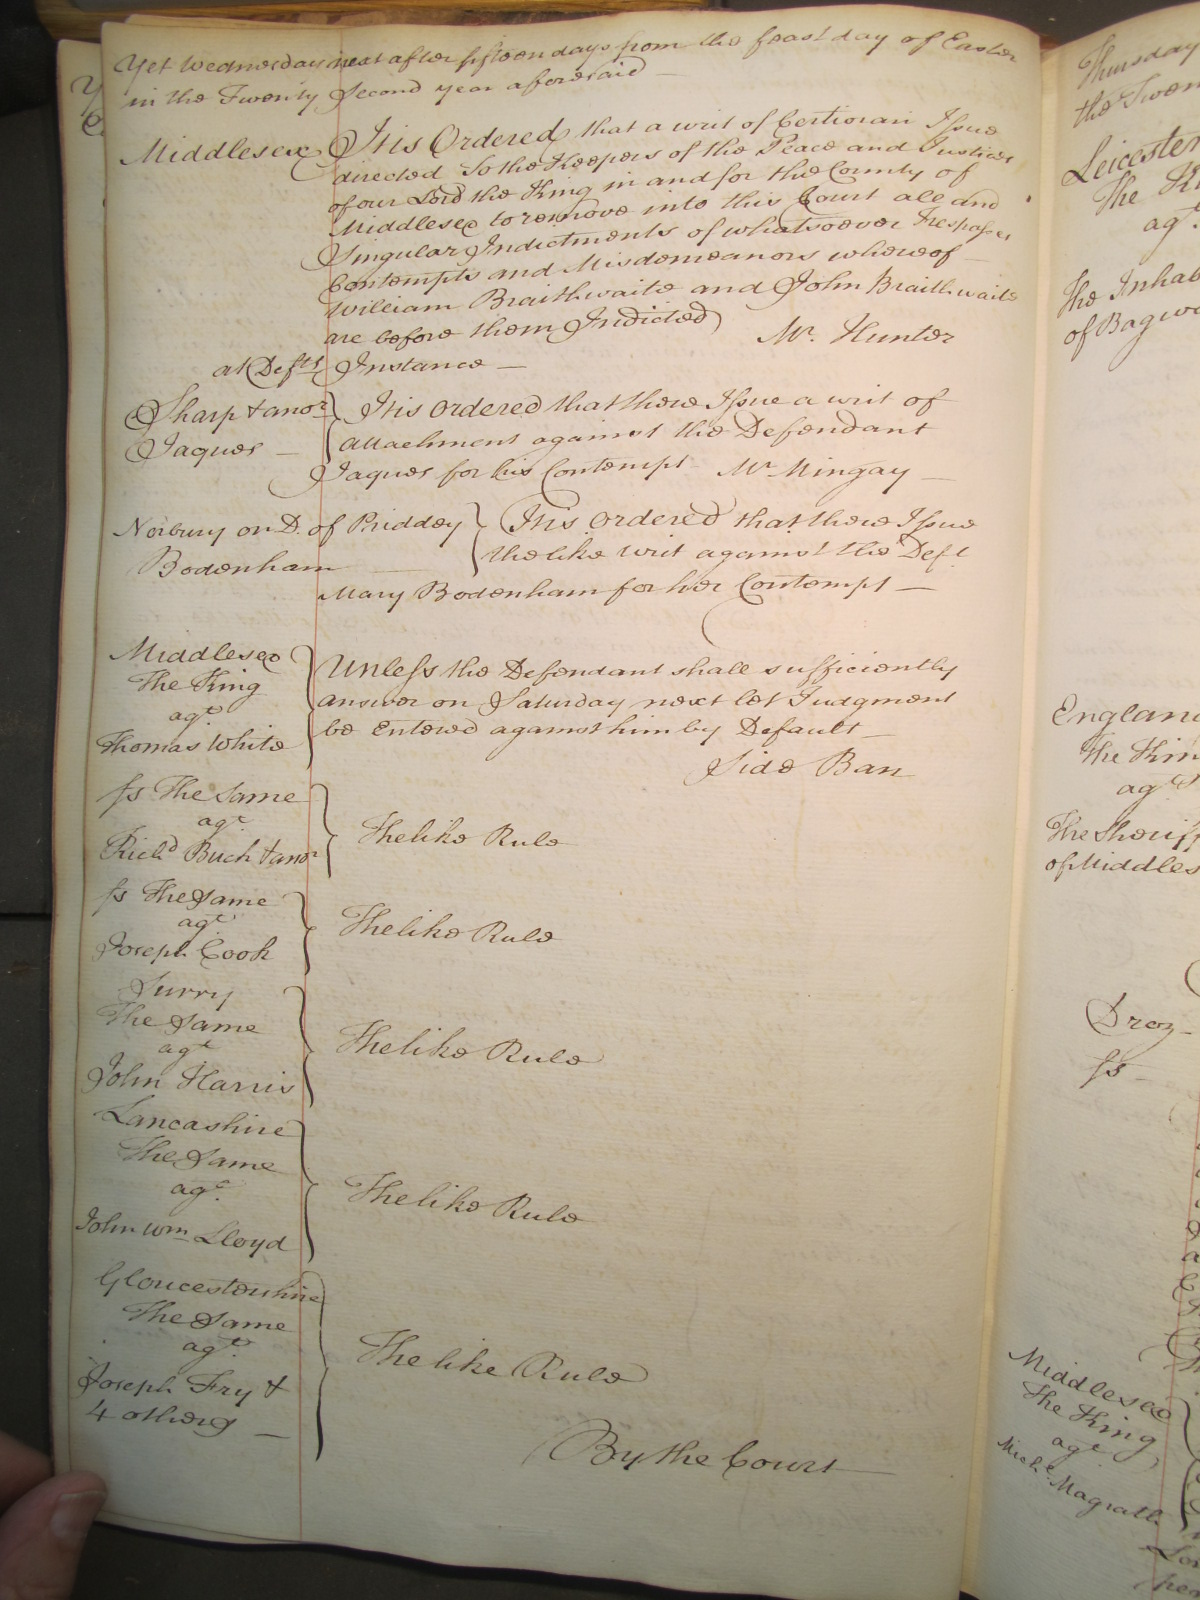 Yet Wednesday next after fifteen days from the feast day of Easter
in the Twenty Second year aforesaid —
Middlesex It is Ordered that a writ of Certiorari Issue
directed To the Keepers of the Peace and Justices
of our Lord the King in and for the County of
Middlesex to remove into this Court all and
Singular Indictments of whatsoever Trespasses
Contempts and Misdemeanors whereof —
William Braithwaite and John Braithwaite
are before them Indicted Mr. Hunter
at Defts Instance —
Sharp & anor It is Ordered that there Issue a writ of
Jaques — attachment against the Defendant
Jaques for his Contempt Mr Mingay —
Norbury on D. of Priddey It is Ordered that there Issue
Bodenham — the like writ against the Deft
Mary Bodenham for her Contempt —
Middlesex
The King
agt.
Thomas White
Unless the Defendant shall sufficiently
answer on Saturday next let Judgment
be Entered against him by Default —
Side Bar
ss The Same
agt
Richd Buch & anor
The like Rule
ss The Same
agt
Joseph Cook
The like Rule
Surry
The Same
agt
John Harris
The like Rule
Lancashire
The Same
agt.
John Wm Lloyd
The like Rule
Gloucestershire
The Same
agt.
Joseph Fry &
4 others —
The like Rule
By the Court
Thursday
the Twen
Leicester
The Ki
agt.
The Inhab
of Bagwo
England
The Kin
agt
The Sheriff
of Middles
Droz —
ss —
Middlesex
The King
agt
Michl Magrath